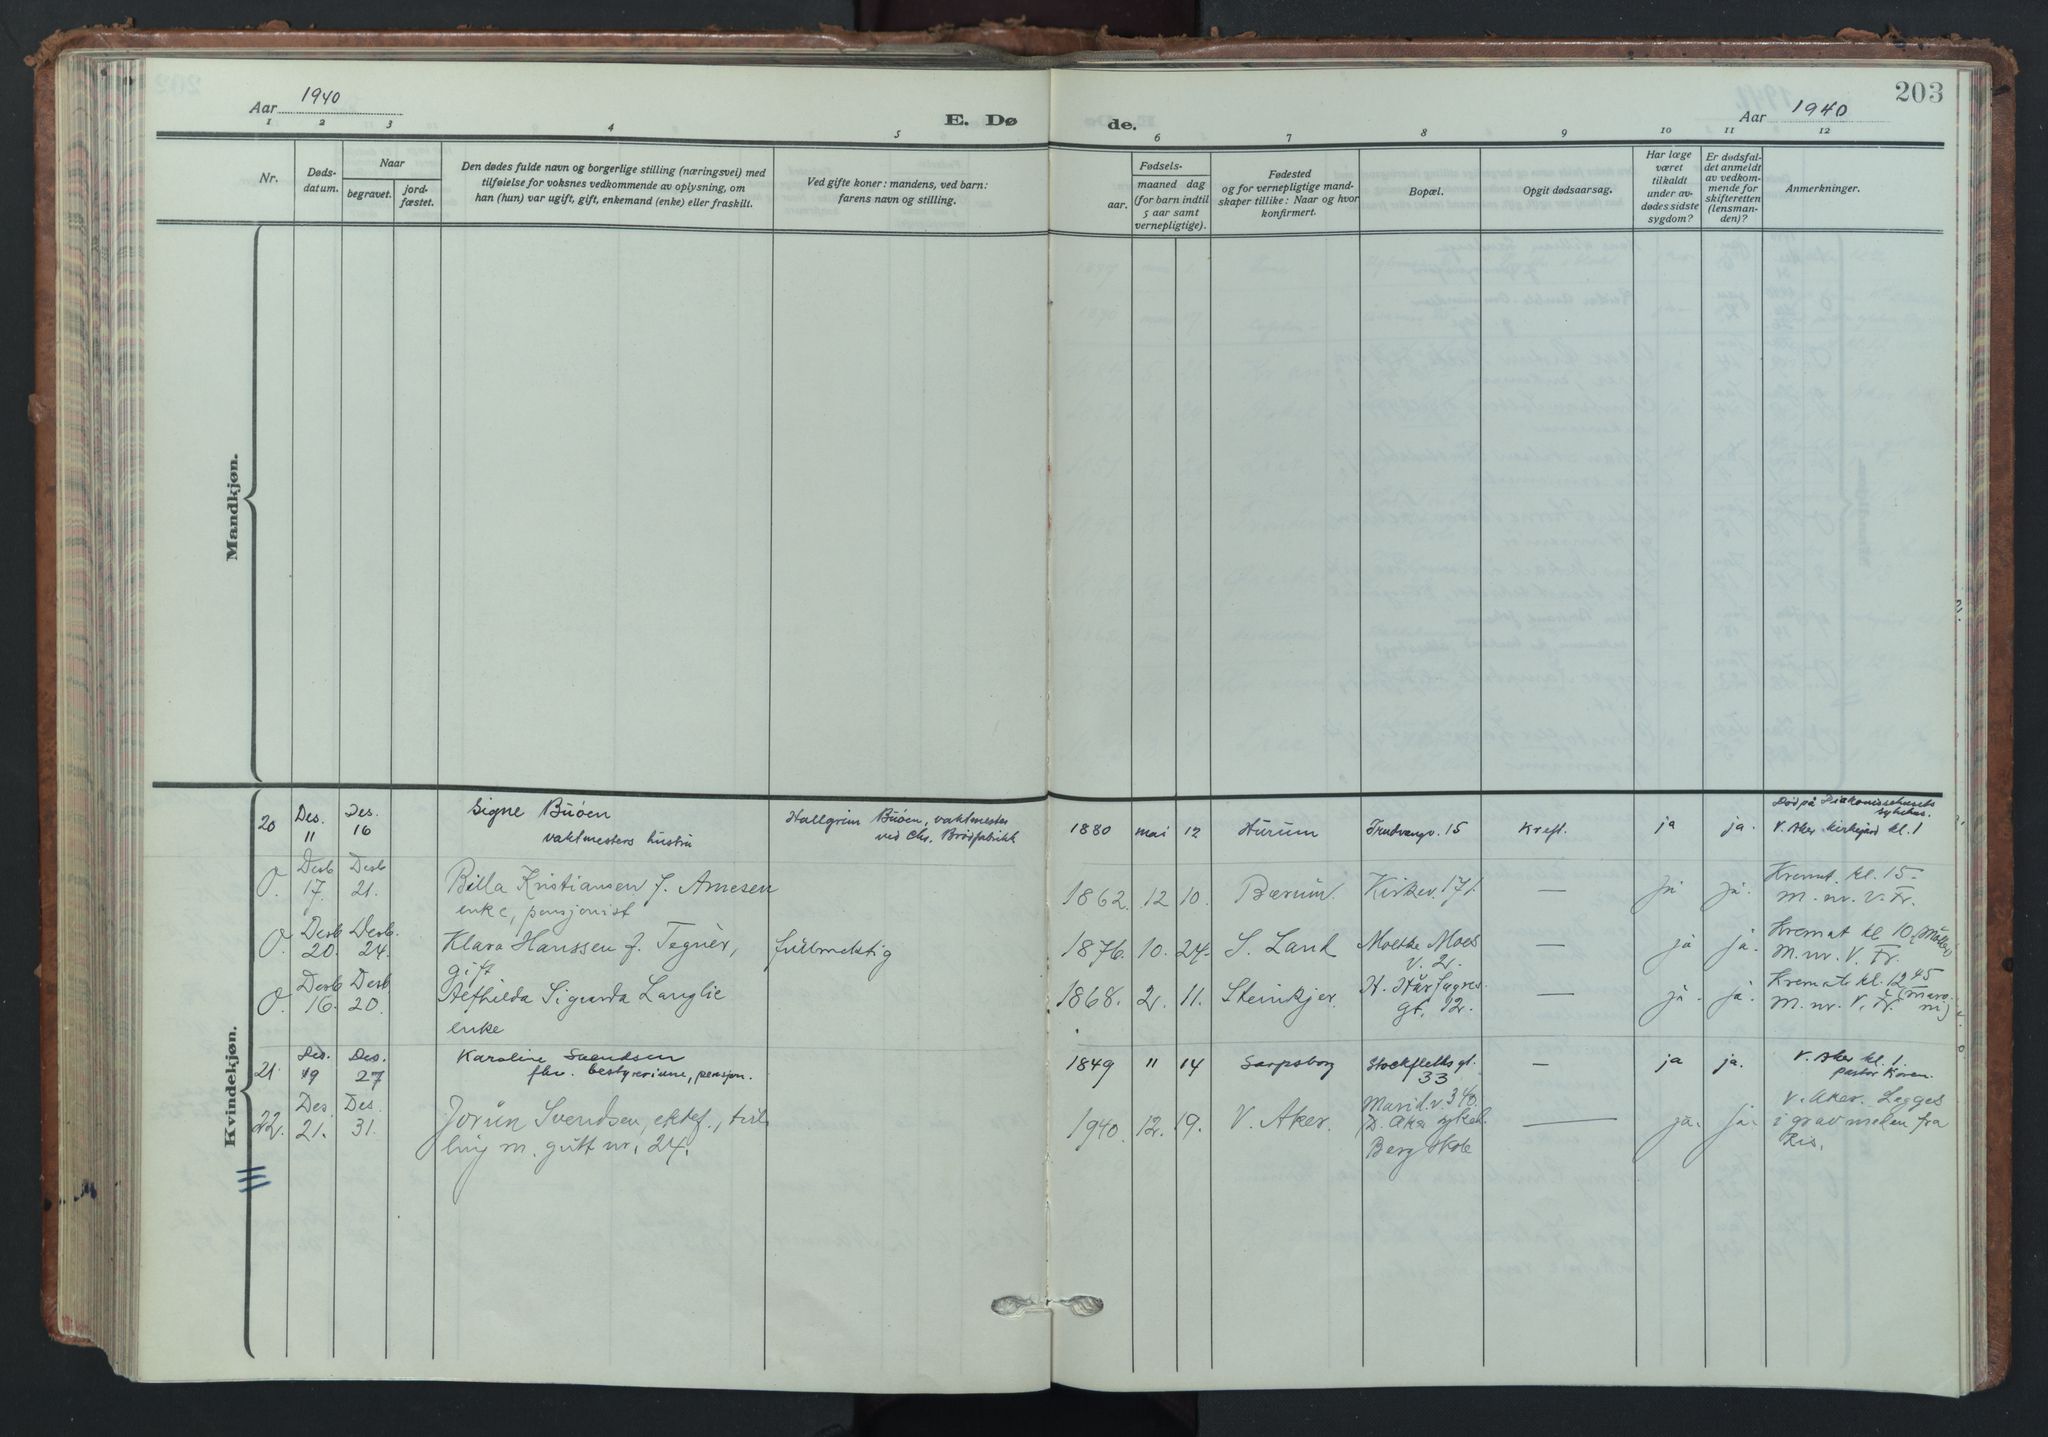 Aar 1940
E. Dø
de.
Aar 1940
203
1 2 3 4 5 6 7 8 9 10 11 12
Nr.
Døds-
datum.
Naar
begravet.
jord-
fæstet.
Den dødes fulde navn og borgerlige stilling (næringsvei) med
tilføielse for voksnes vedkommende av oplysning, om
han (hun) var ugift, gift, enkemand (enke) eller fraskilt.
Ved gifte koner: mandens, ved barn:
farens navn og stilling.
Fødsels-
aar.
maaned dag
(for barn indtil
5 aar samt
vernepligtige).
Fødested
og for vernepligtige mand-
skaper tillike: Naar og hvor
konfirmert.
Bopæl.
Opgit dødsaarsag.
Har læge
været
tilkaldt
under av-
dødes sidste
sygdom?
Er dødsfal-
det anmeldt
av vedkom-
mende for
skifteretten
(lensman-
den)?
Anmerkninger.
Mandkjøn.
Kvindekjøn.
20
Des.
11
Des.
16
Signe Buøen
vaktmesters hustru
Hallgrim Buøen, vaktmester
ved Chr. Brødfabrikk
1880 mai 12 Hurum Trudvangv. 15 Kreft. ja ja.
Død på Diakonissehusets
sykehus.
V. Aker kirkegård kl. 1
O.
Desb
17.
Desb
21.
Billa Kristiansen f. Arnesen
enke, pensjonist
1862. 12 10. Bærum. Kirkev. 171. — ja ja.
Kremat. kl. 15
M. nr. V. Fr.
O.
Desb
20.
Desb.
24.
Klara Hanssen f. Tegnèr,
gift
fullmektig
1876. 10. 24. S. Land
Moltke Moes
v. 2.
— ja ja.
Kremat kl 10
M. nr. V. Fr.
O.
Desb
16.
Desb
20.
Alfhilda Sigurda Langlie
enke
1868. 2. 11. Steinkjer.
H. Hårfagres
gt. 12.
— ja. ja.
Kremat. kl. 12 45
M. nr. V. Fr.
21.
Des.
19
Des.
27
Karoline Svendsen
fhv. bestyrerinne, pensjon.
1849 11 14 Sarpsborg
Stockflethsgt.
33
— ja ja.
V. Aker kl. 1.
pastor Koren.
22.
Des.
21.
Des.
31.
Jorun Svendsen, ektef., tvil
ling m. gutt nr. 24.
1940. 12. 19. V. Aker.
Marid.v. 340.
Berg skole
— ja. ja.
V. Aker. Legges
i grav men fra
Ris.